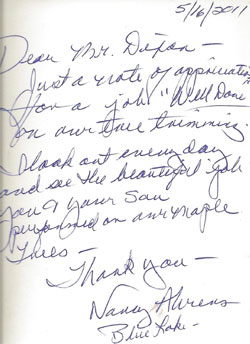 5/16/2011
Dear Mr. Dixon —
Just a note of appreciation
for a job "Well Done"
on our tree trimming.
I look out everyday
and see the beautiful job
you & your Son
performed on our maple
trees —
Thank you —
Nancy Ahrens
Blue Lake —